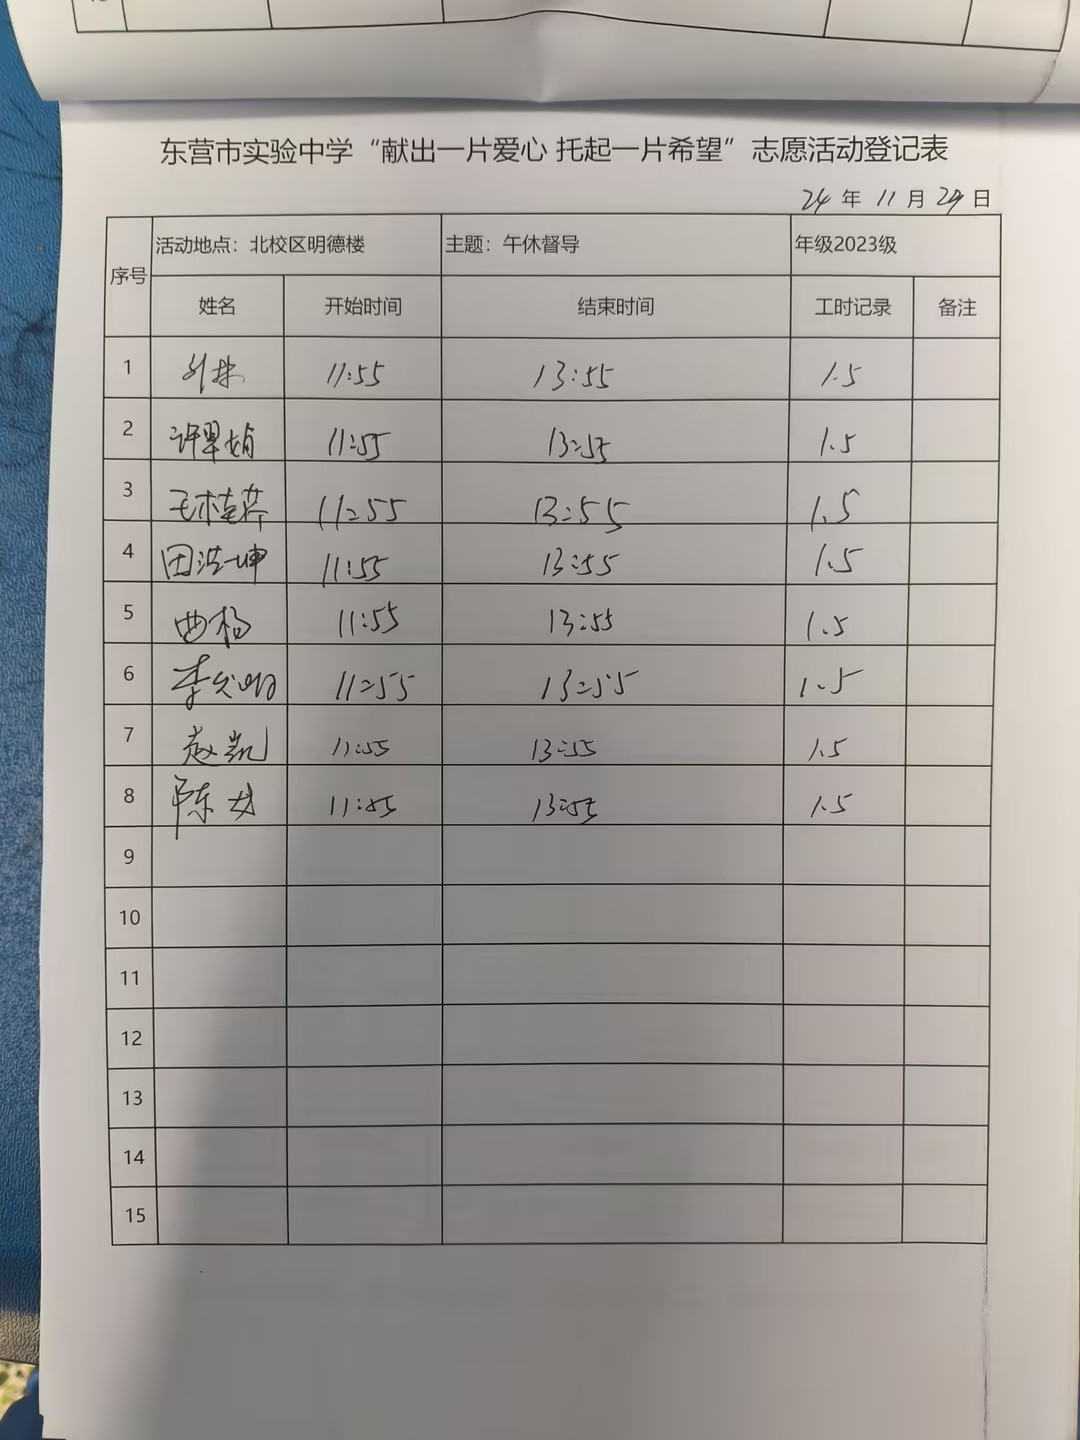 东营市实验中学“献出一片爱心 托起一片希望”志愿活动登记表
24 年 11 月 29 日
序号 活动地点：北校区明德楼 主题：午休督导 年级2023级
姓名 开始时间 结束时间 工时记录 备注
1 11:55 13:55 1.5
2 许翠娟 11:55 13:55 1.5
3 11:55 13:55 1.5
4 田洪坤 11:55 13:55 1.5
5 曲杨 11:55 13:55 1.5
6 李 11:55 13:55 1.5
7 赵凯 11:55 13:55 1.5
8 陈 11:55 13:55 1.5
9
10
11
12
13
14
15